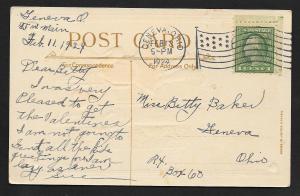 Geneva O.
Feb 11, 1924
POST CARD
GENEVA, OHIO
FEB
5-PM
1924
For Correspondence
For Address Only
Dear Betty
I was very
Pleased to get
the Valentines
I am not going to
send all the
greetings for I am
Miss Betty Baker
Geneva
Ohio
Box 60